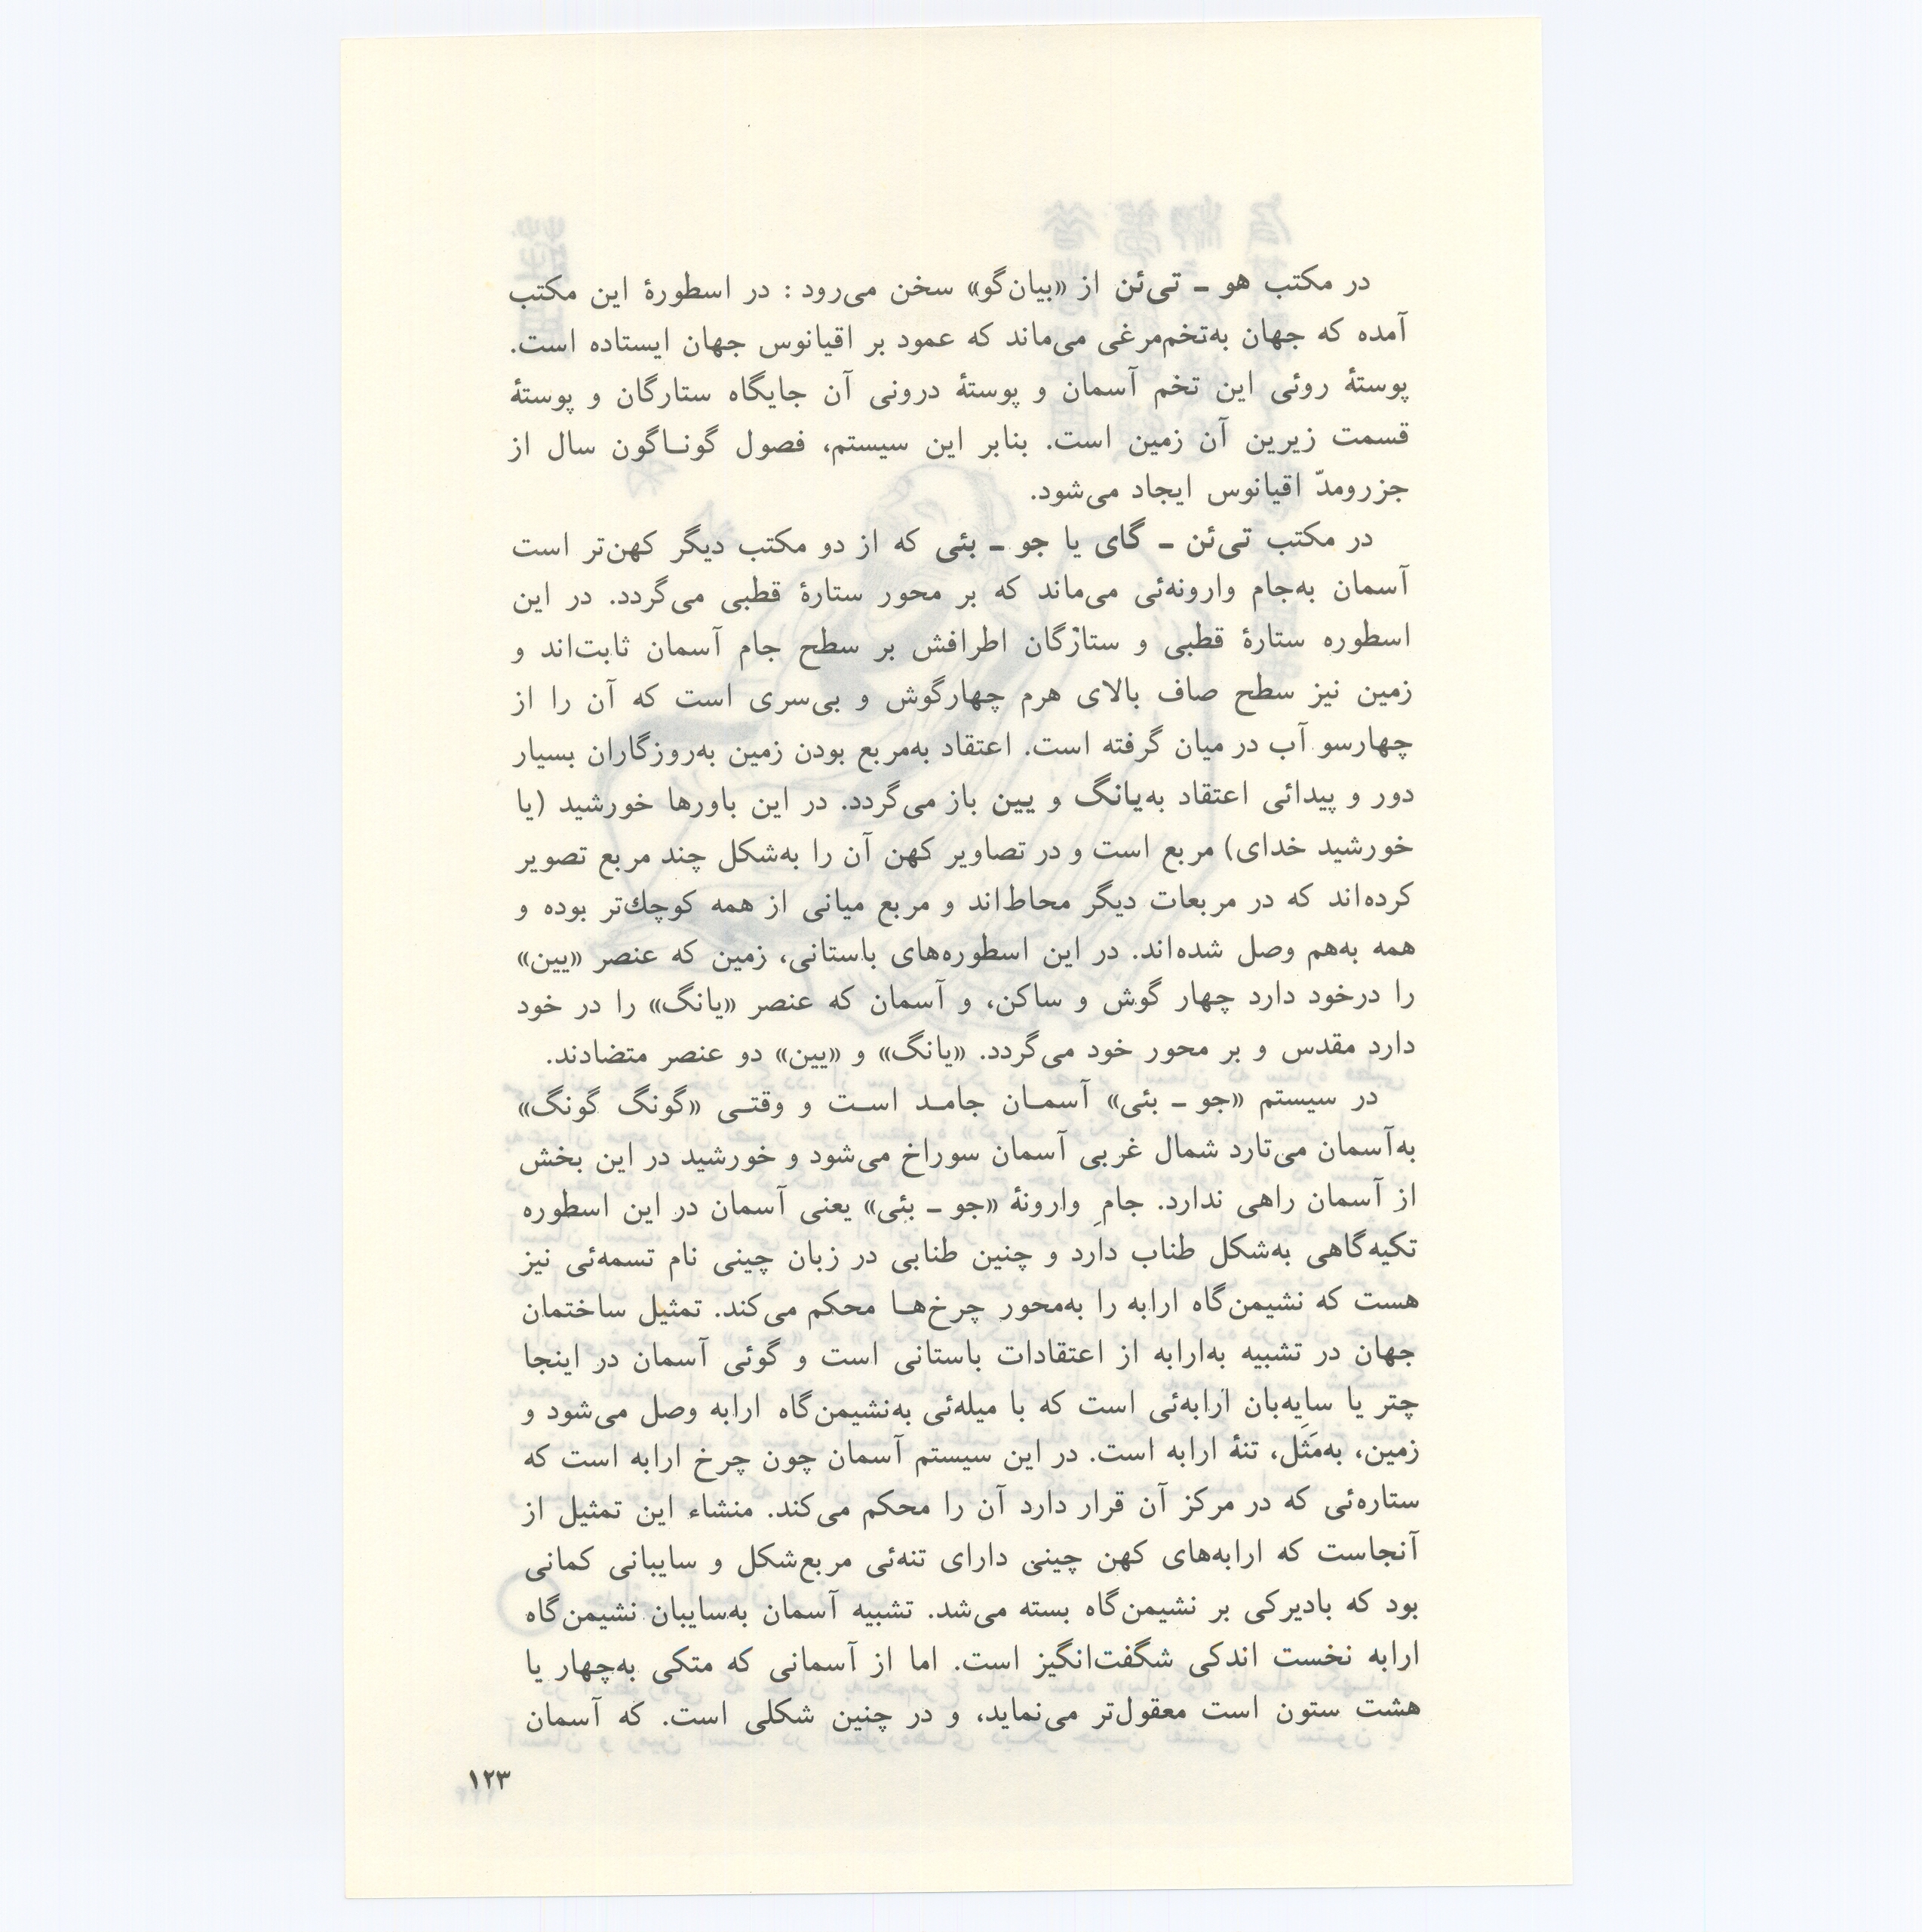 در مکتب هو ـ تی‌ئن از «بیان‌گو» سخن می‌رود : در اسطورهٔ این مکتب
آمده که جهان به‌تخم‌مرغی می‌ماند که عمود بر اقیانوس جهان ایستاده است.
پوستهٔ روئی این تخم آسمان و پوستهٔ درونی آن جایگاه ستارگان و پوستهٔ
قسمت زیرین آن زمین است. بنابر این سیستم، فصول گونـاگون سال از
جزرومدّ اقیانوس ایجاد می‌شود.
در مکتب تی‌ئن ـ گای یا جو ـ بئی که از دو مکتب دیگر کهن‌تر است
آسمان به‌جام وارونه‌ئی می‌ماند که بر محور ستارهٔ قطبی می‌گردد. در این
اسطوره ستارهٔ قطبی و ستارگان اطرافش بر سطح جام آسمان ثابت‌اند و
زمین نیز سطح صاف بالای هرم چهارگوش و بی‌سری است که آن را از
چهارسو آب در میان گرفته است. اعتقاد به‌مربع بودن زمین به‌روزگاران بسیار
دور و پیدائی اعتقاد به‌یانگ و یین باز می‌گردد. در این باورها خورشید (یا
خورشید خدای) مربع است و در تصاویر کهن آن را به‌شکل چند مربع تصویر
کرده‌اند که در مربعات دیگر محاط‌اند و مربع میانی از همه کوچك‌تر بوده و
همه به‌هم وصل شده‌اند. در این اسطوره‌های باستانی، زمین که عنصر «یین»
را درخود دارد چهار گوش و ساکن، و آسمان که عنصر «یانگ» را در خود
دارد مقدس و بر محور خود می‌گردد. «یانگ» و «یین» دو عنصر متضادند.
در سیستم «جو ـ بئی» آسمـان جامـد اسـت و وقتـی «گونگ گونگ»
به‌آسمان می‌تارد شمال غربی آسمان سوراخ می‌شود و خورشید در این بخش
از آسمان راهی ندارد. جامِ وارونهٔ «جو ـ بئی» یعنی آسمان در این اسطوره
تکیه‌گاهی به‌شکل طناب دارد و چنین طنابی در زبان چینی نام تسمه‌ئی نیز
هست که نشیمن‌گاه ارابه را به‌محور چرخ‌هـا محکم می‌کند. تمثیل ساختمان
جهان در تشبیه به‌ارابه از اعتقادات باستانی است و گوئی آسمان در اینجا
چتر یا سایه‌بان ارابه‌ئی است که با میله‌ئی به‌نشیمن‌گاه ارابه وصل می‌شود و
زمین، به‌مَثَل، تنهٔ ارابه است. در این سیستم آسمان چون چرخ ارابه است که
ستاره‌ئی که در مرکز آن قرار دارد آن را محکم می‌کند. منشاء این تمثیل از
آنجاست که ارابه‌های کهن چینی دارای تنه‌ئی مربع‌شکل و سایبانی کمانی
بود که بادیرکی بر نشیمن‌گاه بسته می‌شد. تشبیه آسمان به‌سایبان نشیمن‌گاه
ارابه نخست اندکی شگفت‌انگیز است. اما از آسمانی که متکی به‌چهار یا
هشت ستون است معقول‌تر می‌نماید، و در چنین شکلی است. که آسمان
۱۲۳